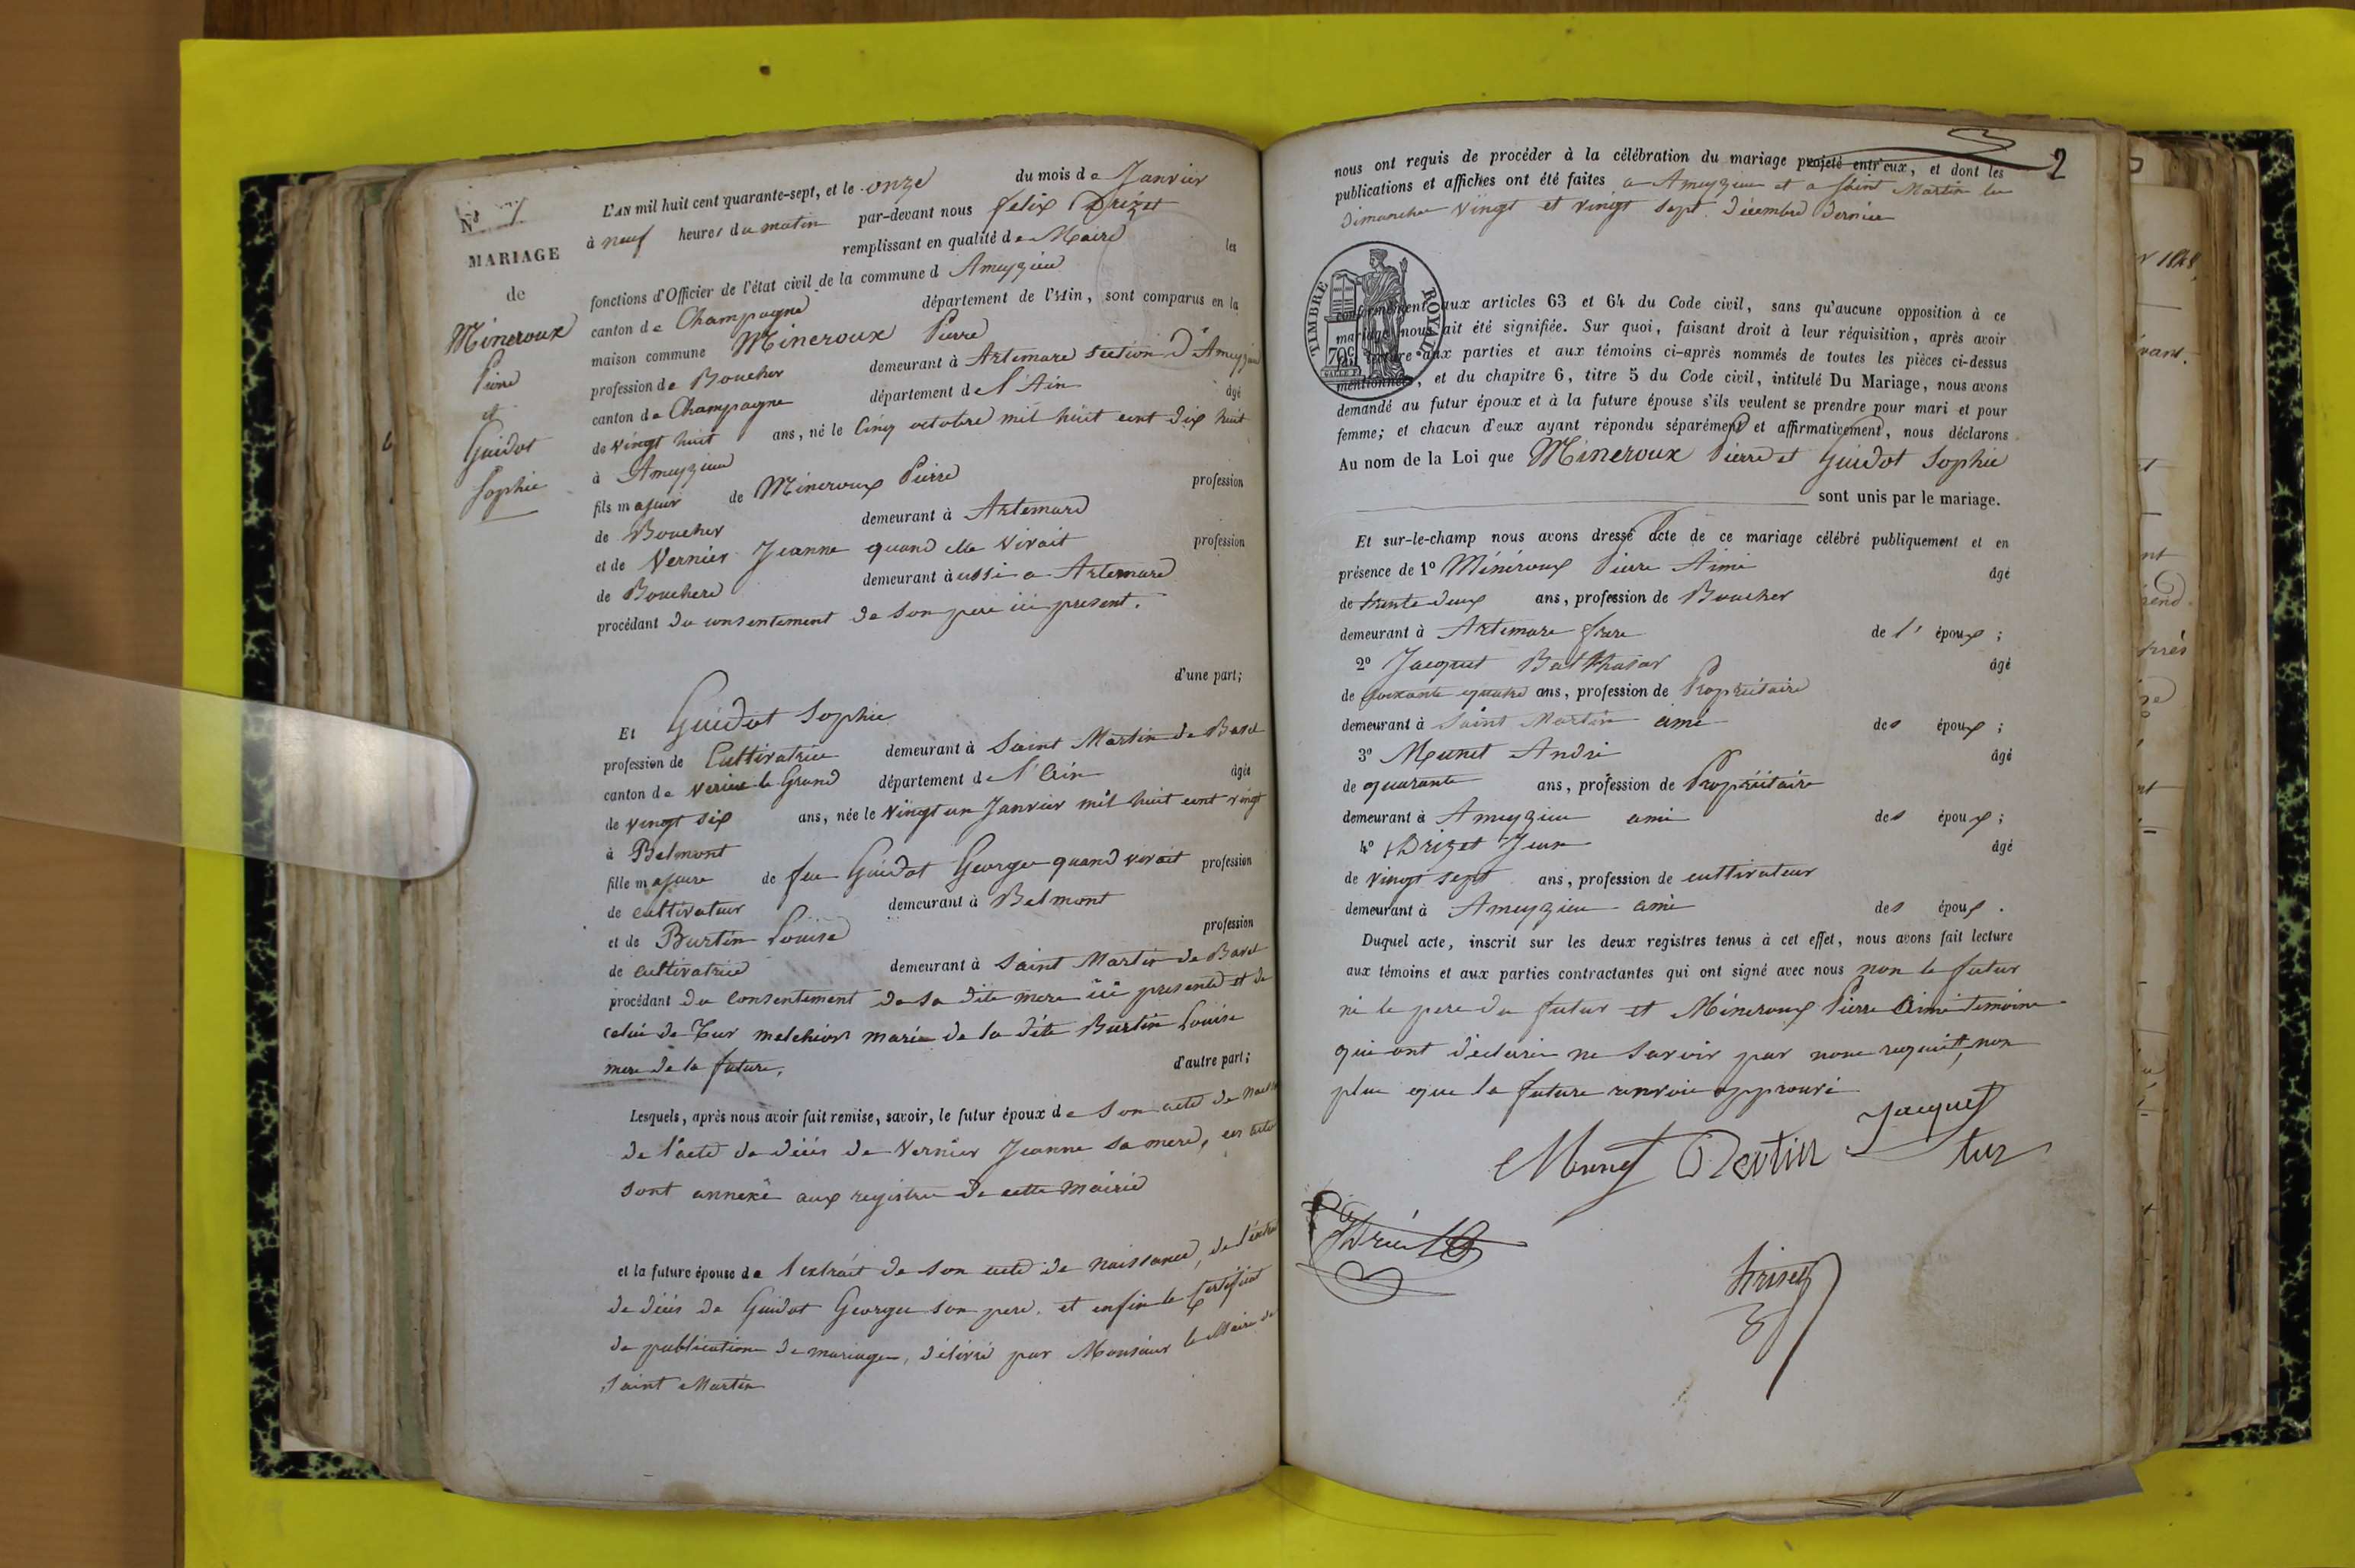 N° 1
MARIAGE
de
Mineroux
Pierre
et
Guidot
Sophie
L'AN mil huit cent quarante-sept, et le onze du mois de Janvier
à neuf heures du matin par-devant nous felix Drizet
remplissant en qualité de Maire les
fonctions d'Officier de l'état civil de la commune d Ameyzieu
canton de Champagne département de l'Ain, sont comparus en la
maison commune Mineroux Pierre
profession de Boucher demeurant à Artemare section d'Ameyzieu
canton de Champagne département de l'Ain âgé
de vingt huit ans, né le Cinq octobre mil huit cent dix huit
à Ameyzieu
fils majeur de Mineroux Pierre profession
de Boucher demeurant à Artemare
et de Vernier Jeanne quand elle vivait profession
de Bouchere demeurant à ussi a Artemare
procédant du consentement de son pere ici present.
d'une part;
Et Guidot Sophie
profession de Cultivatrice demeurant à Saint Martin de Bavel
canton de Virieu le Grand département de l'Ain âgée
de vingt six ans, née le vingt un Janvier mil huit cent vingt
à Belmont
fille majeure de feu Guidot George quand vivait profession
de cultivateur demeurant à Belmont
et de Burtin Louise profession
de cultivatrice demeurant à Saint Martin de Bavel
procédant du consentement de sa dite mere ici presente et de
celui de Tur melchior marie de la dite Burtin Louise
mere de la future,
d'autre part;
Lesquels, après nous avoir fait remise, savoir, le futur époux de Son acte de
de l'acte de décès de Vernier Jeanne sa mere, ces actes
sont annexé aux registre de cette mairie
et la future épouse de l'extrait de son acte de naissance, de l'extrait
de décès de Guidot George son pere. et enfin le certificat
de publication de mariage, délivré par Monsieur le Maire de
Saint Martin
2
nous ont requis de procéder à la célébration du mariage projeté entr'eux, et dont les
publications et affiches ont été faites a Ameyzieu et a Saint Martin les
Dimanche vingt et vingt sept décembre dernier
TIMBRE ROYAL
70c
conformément aux articles 63 et 64 du Code civil, sans qu'aucune opposition à ce
mariage nous ait été signifiée. Sur quoi, faisant droit à leur réquisition, après avoir
lecture aux parties et aux témoins ci-après nommés de toutes les pièces ci-dessus
mentionnées, et du chapitre 6, titre 5 du Code civil, intitulé Du Mariage, nous avons
demandé au futur époux et à la future épouse s'ils veulent se prendre pour mari et pour
femme; et chacun d'eux ayant répondu séparément et affirmativement, nous déclarons
Au nom de la Loi que Mineroux Pierre et Guidot Sophie
sont unis par le mariage.
Et sur-le-champ nous avons dressé acte de ce mariage célébré publiquement et en
présence de 1° Minéroux Pierre Aimé âgé
de trente deux ans, profession de Boucher
demeurant à Artemare frere de l'époux;
2° Jacquet Balthasar âgé
de soixante quatre ans, profession de Propriétaire
demeurant à Saint Martin ami des époux;
3° Meunet André âgé
de quarante ans, profession de Propriétaire
demeurant à Ameyzieu ami des époux;
4° Drizet Jean âgé
de vingt sept ans, profession de cultivateur
demeurant à Ameyzieu ami des époux.
Duquel acte, inscrit sur les deux registres tenus à cet effet, nous avons fait lecture
aux témoins et aux parties contractantes qui ont signé avec nous non le futur
ni le pere du futur et Mineroux Pierre Aimé temoins
qui ont déclaré ne savoir par nous requit, non
plus que la future renvoie approuvé
Jacquet
tur